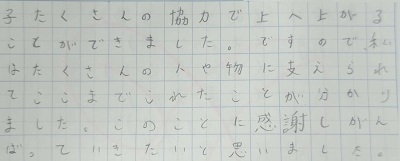 子たくさんの協力で上へ上がる
ことができました。ですので、私
はたくさんの人や物に支えられ
てここまでこれたことが分かり
ました。このことに感謝しがん
ば。ていきたいと思いました。